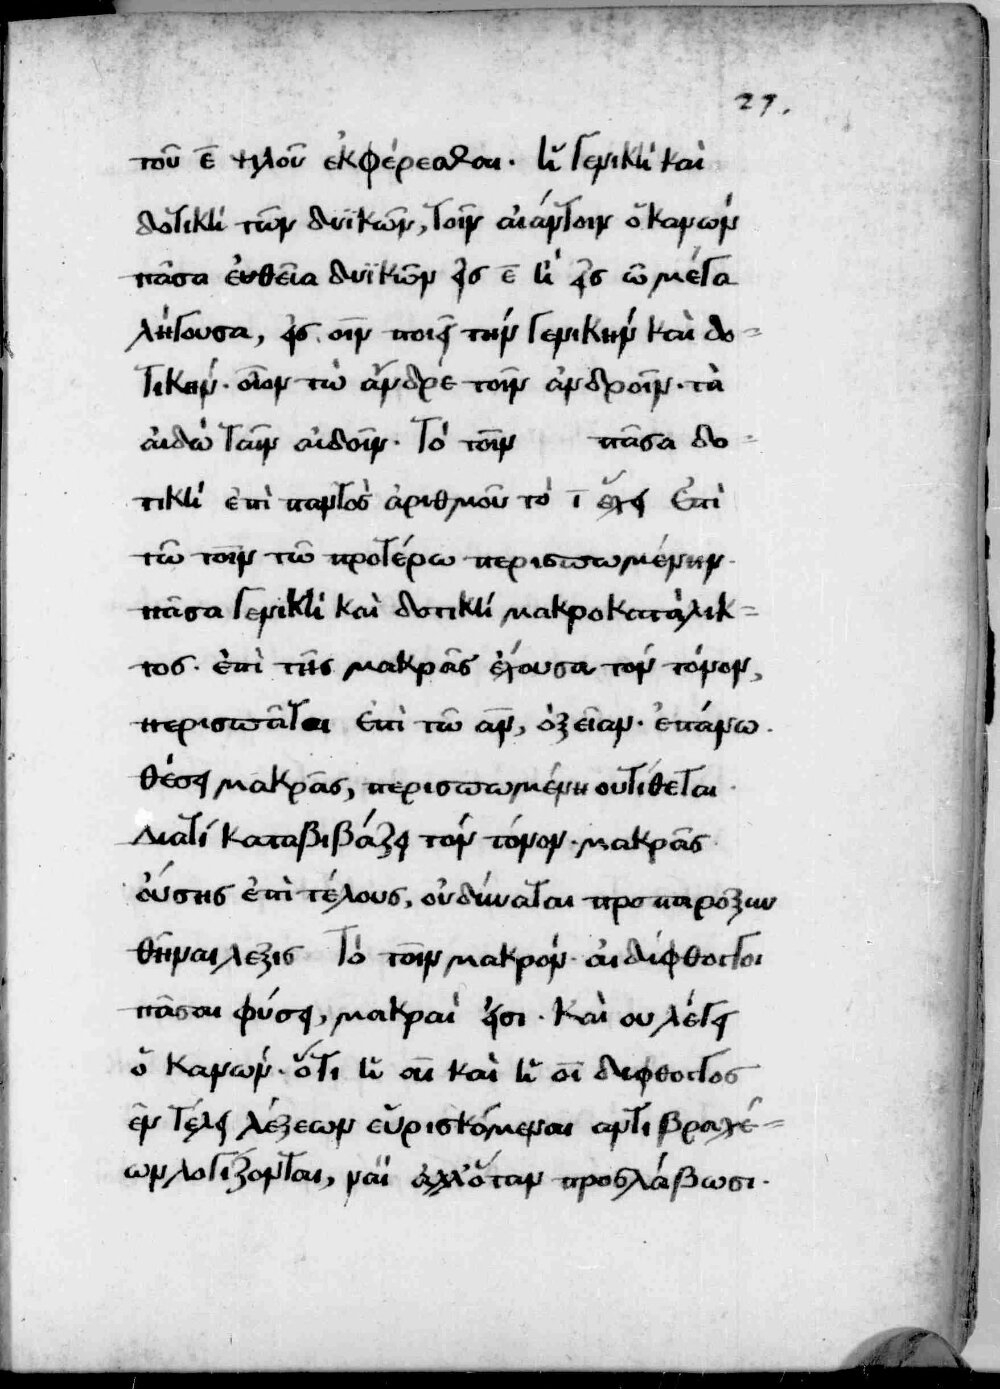 27.
τοῦ ε̄ ψιλοῦ ἐκφέρεσθαι. ἡ γενικὴ καὶ
δοτικὴ τῶν δυϊκῶν, τοῖν αἰάντοιν ὁ κανών
πᾶσα ἐυθεῖα δυϊκῶν εἰς ε̄ ἢ εἰς ω̄ μέγα
λήγουσα, εἰς οιν ποιεῖ τὴν γενικὴν καὶ δο=
τικήν. οἷον τὼ ἄνδρε τοῖν ἀνδροῖν. τὰ
αιδὼ ταῖν αἰδοῖν. Τὸ τοῖν πᾶσα δο=
τικὴ ἐπὶ παντὸς ἀριθμοῦ τὸ ῑ ἔχει Ἐπὶ
τῶ τοῖν τῶ προτέρω περισπωμένην.
πᾶσα γενικὴ καὶ δοτικὴ μακροκατάληκ=
τος. ἐπὶ τῆς μακρᾶς ἔχουσα τὸν τόνον,
περισπᾶται Ἐπὶ τῶ αν, ὀξεῖαν. ἐπάνω.
θέσει μακρᾶς, περισπωμένη ουτίθεται.
Διατί καταβιβάζει τὸν τόνον. μακρᾶς
ὀύσης ἐπὶ τέλους, οὐ δύναται προπαροξυν
θῆναι λεξις Τὸ τοῖν μακρόν. αἱ δίφθογγοι
πᾶσαι φύσει, μακραὶ εἰσι. Καὶ ου λέγει
ὁ κανών. ὅτι ἡ αῑ καὶ ἡ οῑ διφθογγος
ἐν τέλει λέξεων εὑρισκόμεναι αντι βραχέ=
ων λογίζονται, ναί ἀλλ' ὅταν προσλάβωσι.